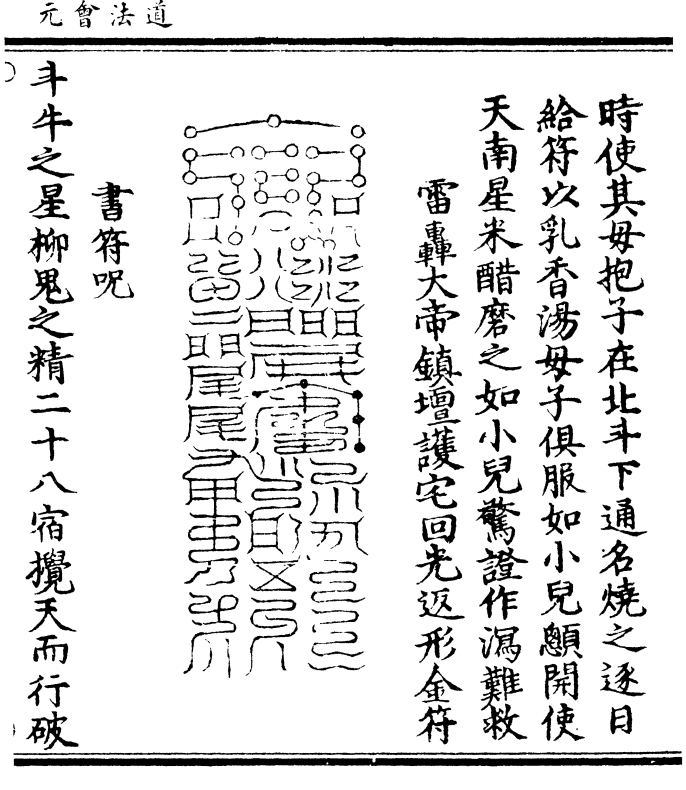 道法會元
時使其母抱子在北斗下通名燒之逐日
給符以乳香湯母子俱服如小兒顖開使
天南星米醋磨之如小兒驚證作瀉難救
雷轟大帝鎮壇護宅回光返形金符
書符呪
斗牛之星柳鬼之精二十八宿攪天而行破